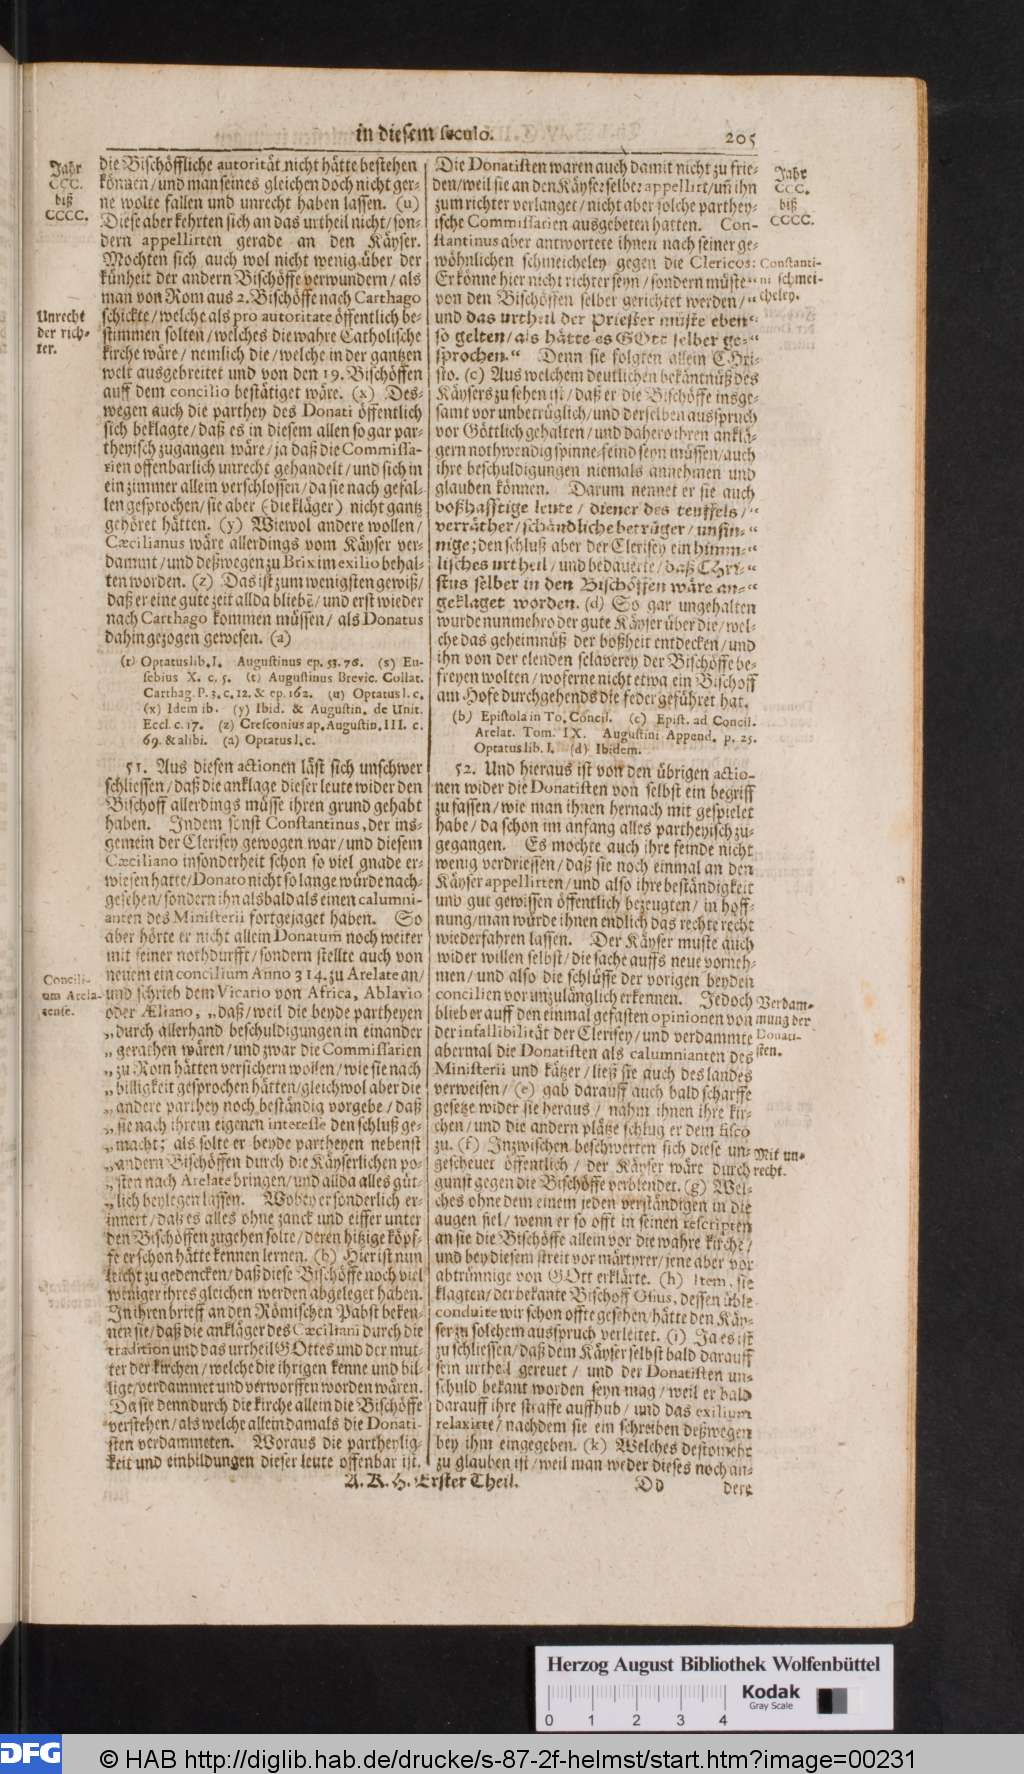 in diesem seculo.
205
Jahr
CCC.
biß
CCCC.
die Bischöffliche autorität nicht hätte bestehen
können / und man seines gleichen doch nicht ger-
ne wolte fallen und unrecht haben lassen. (u)
Diese aber kehrten sich an das urtheil nicht / son-
dern appellirten gerade an den Käyser.
Mochten sich auch wol nicht wenig über der
künheit der andern Bischöffe verwundern / als
man von Rom aus 2. Bischöffe nach Carthago
Unrecht
der rich-
ter.
schickte / welche als pro autoritate öffentlich be-
stimmen solten / welches die wahre Catholische
kirche wäre / nemlich die / welche in der gantzen
welt ausgebreitet und von den 19. Bischöffen
auff dem concilio bestätiget wäre. (x) Des-
wegen auch die parthey des Donati öffentlich
sich beklagte / daß es in diesem allen so gar par-
theyisch zugangen wäre / ja daß die Commissa-
rien offenbarlich unrecht gehandelt / und sich in
ein zimmer allein verschlossen / da sie nach gefal-
len gesprochen / sie aber (die kläger) nicht gantz
gehöret hätten. (y) Wiewol andere wollen /
Cæcilianus wäre allerdings vom Käyser ver-
dammt / und deßwegen zu Brix im exilio behal-
ten worden. (z) Das ist zum wenigsten gewiß /
daß er eine gute zeit allda bliebē / und erst wieder
nach Carthago kommen müssen / als Donatus
dahin gezogen gewesen. (a)
(r) Optatus lib. I. Augustinus ep. 53. 76. (s) Eu-
sebius X. c. 5. (t) Augustinus Brevic. Collat.
Carthag. P. 3. c. 12. & ep. 162. (u) Optatus l. c.
(x) Idem ib. (y) Ibid. & Augustin. de Unit.
Eccl. c. 17. (z) Cresconius ap. Augustin. III. c.
69. & alibi. (a) Optatus l. c.
51. Aus diesen actionen läst sich unschwer
schliessen / daß die anklage dieser leute wider den
Bischoff allerdings müsse ihren grund gehabt
haben. Indem sonst Constantinus, der ins-
gemein der Clerisey gewogen war / und diesem
Cæciliano insonderheit schon so viel gnade er-
wiesen hatte / Donato nicht so lange würde nach-
gesehen / sondern ihn alsbald als einen calumni-
anten des Ministerii fortgejaget haben. So
aber hörte er nicht allein Donatum noch weiter
mit seiner nothdurfft / sondern stellte auch von
Concili-
um Arela-
tense.
neuem ein concilium Anno 314. zu Arelate an /
und schrieb dem Vicario von Africa, Ablavio
oder Æliano, „daß / weil die beyde partheyen
„durch allerhand beschuldigungen in einander
„gerathen wären / und zwar die Commissarien
„zu Rom hätten versichern wollen / wie sie nach
„billigkeit gesprochen hätten / gleichwol aber die
„andere parthey noch beständig vorgebe / daß
„sie nach ihrem eigenen interesse den schluß ge-
„macht; als solte er beyde partheyen nebenst
„andern Bischöffen durch die Käyserlichen po-
„sten nach Arelate bringen / und allda alles güt-
„lich beylegen lassen. Wobey er sonderlich er-
innert / daß es alles ohne zanck und eiffer unter
den Bischöffen zugehen solte / deren hitzige köpf-
fe er schon hätte kennen lernen. (b) Hier ist nun
leicht zu gedencken / daß diese Bischöffe noch viel
weniger ihres gleichen werden abgeleget haben.
In ihren brieff an den Römischen Pabst beken-
nen sie / daß die ankläger des Cæciliani durch die
tradition und das urtheil GOttes und der mut-
ter der kirchen / welche die ihrigen kenne und bil-
lige / verdammet und verworffen worden wären.
Da sie denn durch die kirche allein die Bischöffe
verstehen / als welche allein damals die Donati-
sten verdammeten. Woraus die partheylig-
keit und einbildungen dieser leute offenbar ist.
Die Donatisten waren auch damit nicht zu frie-
den / weil sie an den Käyser selber appellirt / uñ ihn
zum richter verlanget / nicht aber solche parthey-
ische Commissarien ausgebeten hatten. Con-
stantinus aber antwortete ihnen nach seiner ge-
wöhnlichen schmeicheley gegen die Clericos:
Er könne hier nicht richter seyn / sondern müste“
von den Bischöffen selber gerichtet werden /“
und das urtheil der Priester müste eben“
so gelten / als hätte es GOtt selber ge-“
sprochen.“ Denn sie folgten allein Chri-
sto. (c) Aus welchem deutlichen bekäntnüß des
Käysers zu sehen ist / daß er die Bischöffe insge-
samt vor unbetrüglich / und derselben ausspruch
vor Göttlich gehalten / und dahero ihren anklä-
gern nothwendig spinne-feind seyn müssen / auch
ihre beschuldigungen niemals annehmen und
glauben können. Darum nennet er sie auch
boßhafftige leute / diener des teuffels /“
verräther / schändliche betrüger / unsin-“
nige; den schluß aber der Clerisey ein himm-“
lisches urtheil / und bedauerte / daß Chri-“
stus selber in den Bischöffen wäre an-“
geklaget worden. (d) So gar ungehalten
wurde nunmehro der gute Käyser über die / wel-
che das geheimnüß der boßheit entdecken / und
ihn von der elenden sclaverey der Bischöffe be-
freyen wolten / woferne nicht etwa ein Bischoff
am Hofe durchgehends die feder geführet hat.
(b) Epistola in To. Concil. (c) Epist. ad Concil.
Arelat. Tom. IX. Augustini Append. p. 25.
Optatus lib. I. (d) Ibidem.
52. Und hieraus ist von den übrigen actio-
nen wider die Donatisten von selbst ein begriff
zu fassen / wie man ihnen hernach mit gespielet
habe / da schon im anfang alles partheyisch zu-
gegangen. Es mochte auch ihre feinde nicht
wenig verdriessen / daß sie noch einmal an den
Käyser appellirten / und also ihre beständigkeit
und gut gewissen öffentlich bezeugten / in hoff-
nung / man würde ihnen endlich das rechte recht
wiederfahren lassen. Der Käyser muste auch
wider willen selbst / die sache auffs neue vorneh-
men / und also die schlüsse der vorigen beyden
concilien vor unzulänglich erkennen. Jedoch
blieb er auff den einmal gefasten opinionen von
der infallibilität der Clerisey / und verdammte
abermal die Donatisten als calumnianten des
Ministerii und kätzer / ließ sie auch des landes
verweisen / (e) gab darauff auch bald scharffe
gesetze wider sie heraus / nahm ihnen ihre kir-
chen / und die andern plätze schlug er dem fisco
zu. (f) Inzwischen beschwerten sich diese un-
gescheuet öffentlich / der Käyser wäre durch
gunst gegen die Bischöffe verblendet. (g) Wel-
ches ohne dem einem jeden verständigen in die
augen fiel / wenn er so offt in seinen rescripten
an sie die Bischöffe allein vor die wahre kirche /
und bey diesem streit vor märtyrer / jene aber vor
abtrünnige von GOtt erklärte. (h) Item, sie
klagten / der bekante Bischoff Osius, dessen üble
conduite wir schon offte gesehen / hätte den Käy-
ser zu solchem ausspruch verleitet. (i) Ja es ist
zu schliessen / daß dem Käyser selbst bald darauff
sein urtheil gereuet / und der Donatisten un-
schuld bekant worden seyn mag / weil er bald
darauff ihre straffe auffhub / und das exilium
relaxirte / nachdem sie ein schreiben deßwegen
bey ihm eingegeben. (k) Welches destomehr
zu glauben ist / weil man weder dieses noch an-
Jahr
CCC.
biß
CCCC.
Constanti-
ni schmei-
cheley.
Verdam-
mung der
Donati-
sten.
Mit un-
recht.
A. K. H. Erster Theil.
Dd
dere
Herzog August Bibliothek Wolfenbüttel
Kodak
Gray Scale
0 1 2 3 4
DFG
© HAB http://diglib.hab.de/drucke/s-87-2f-helmst/start.htm?image=00231